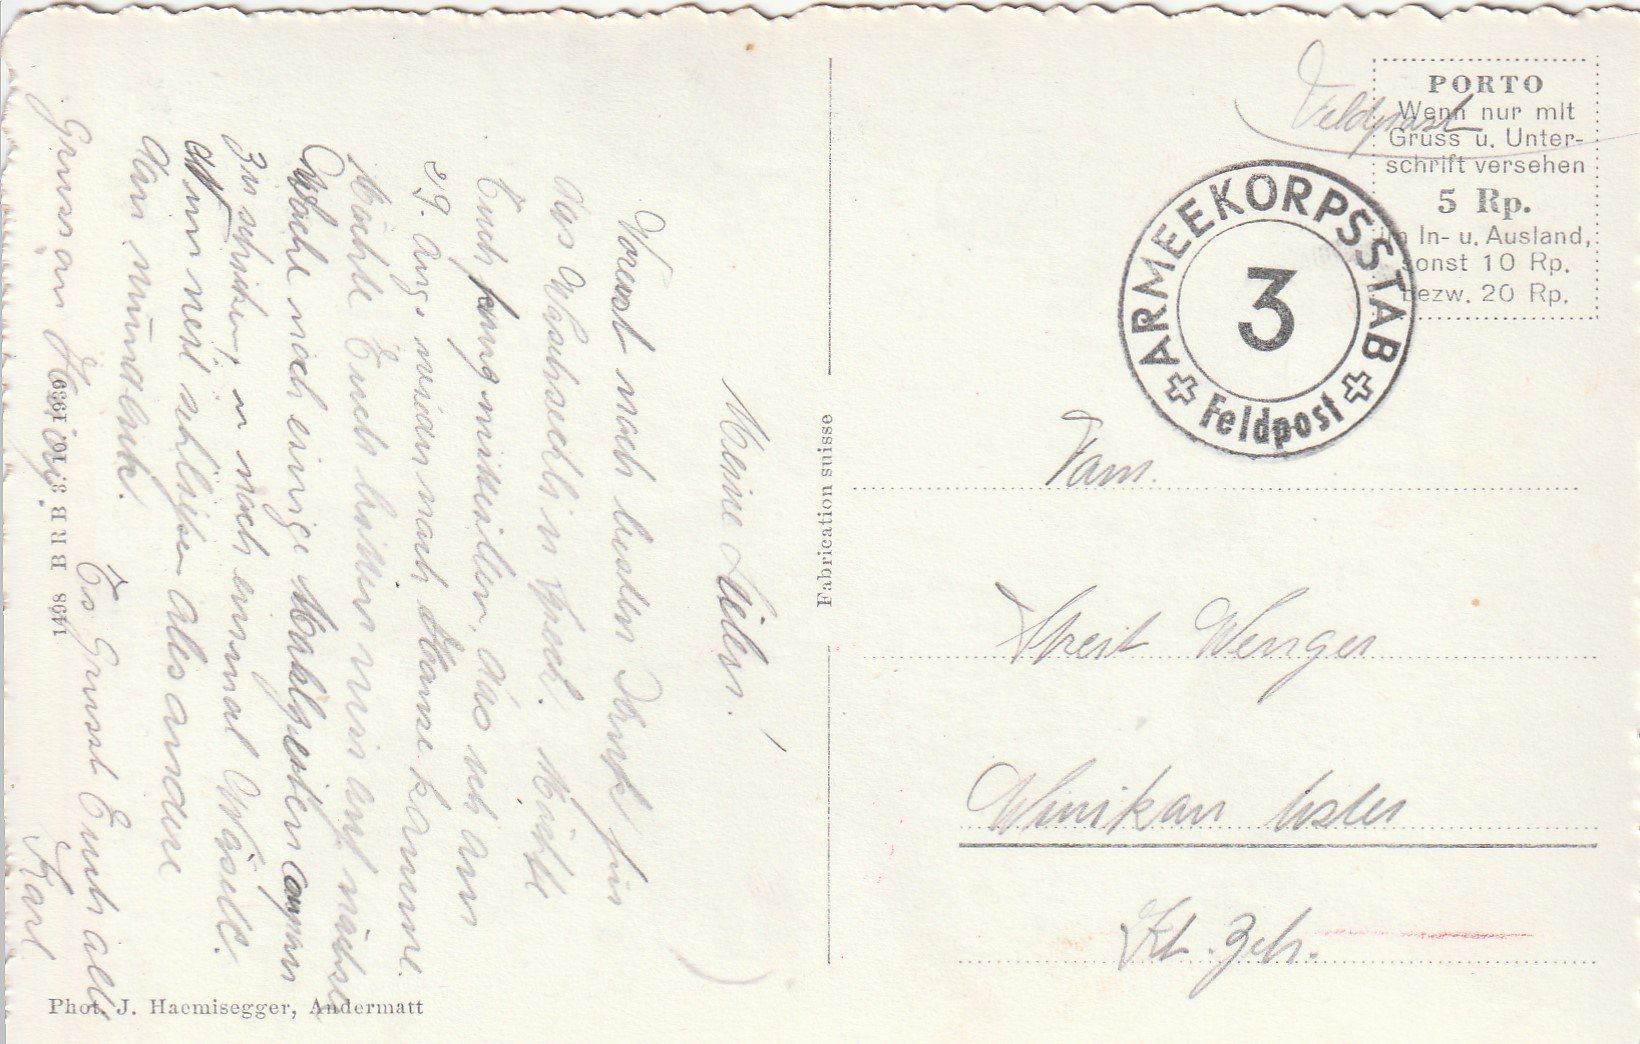 Meine Lieben!
Vorerst noch besten Dank für
das Wäschsäckli u Speck. Möchte
Euch mitteilen, das ich am
29. Aug. wieder nach Hause komme.
Möchte Euch bitten mir auf nächste
Woche noch einige Mahlzeitencoupons
zu schicken, u noch einmal Wäsche.
alles andere
dan mündlich.
Es Grüsst Euch alle
Karl
Gruss an
1498 B R B 3. 10. 1939
Phot. J. Haemisegger, Andermatt
Fabrication suisse
Feldpost
PORTO
Wenn nur mit
Gruss u. Unter-
schrift versehen
5 Rp.
im In- u. Ausland,
sonst 10 Rp.
bezw. 20 Rp.
ARMEEKORPSSTAB
3
Feldpost
Fam.
Streit Wenger
Winikon Uster
Kt. Zch.